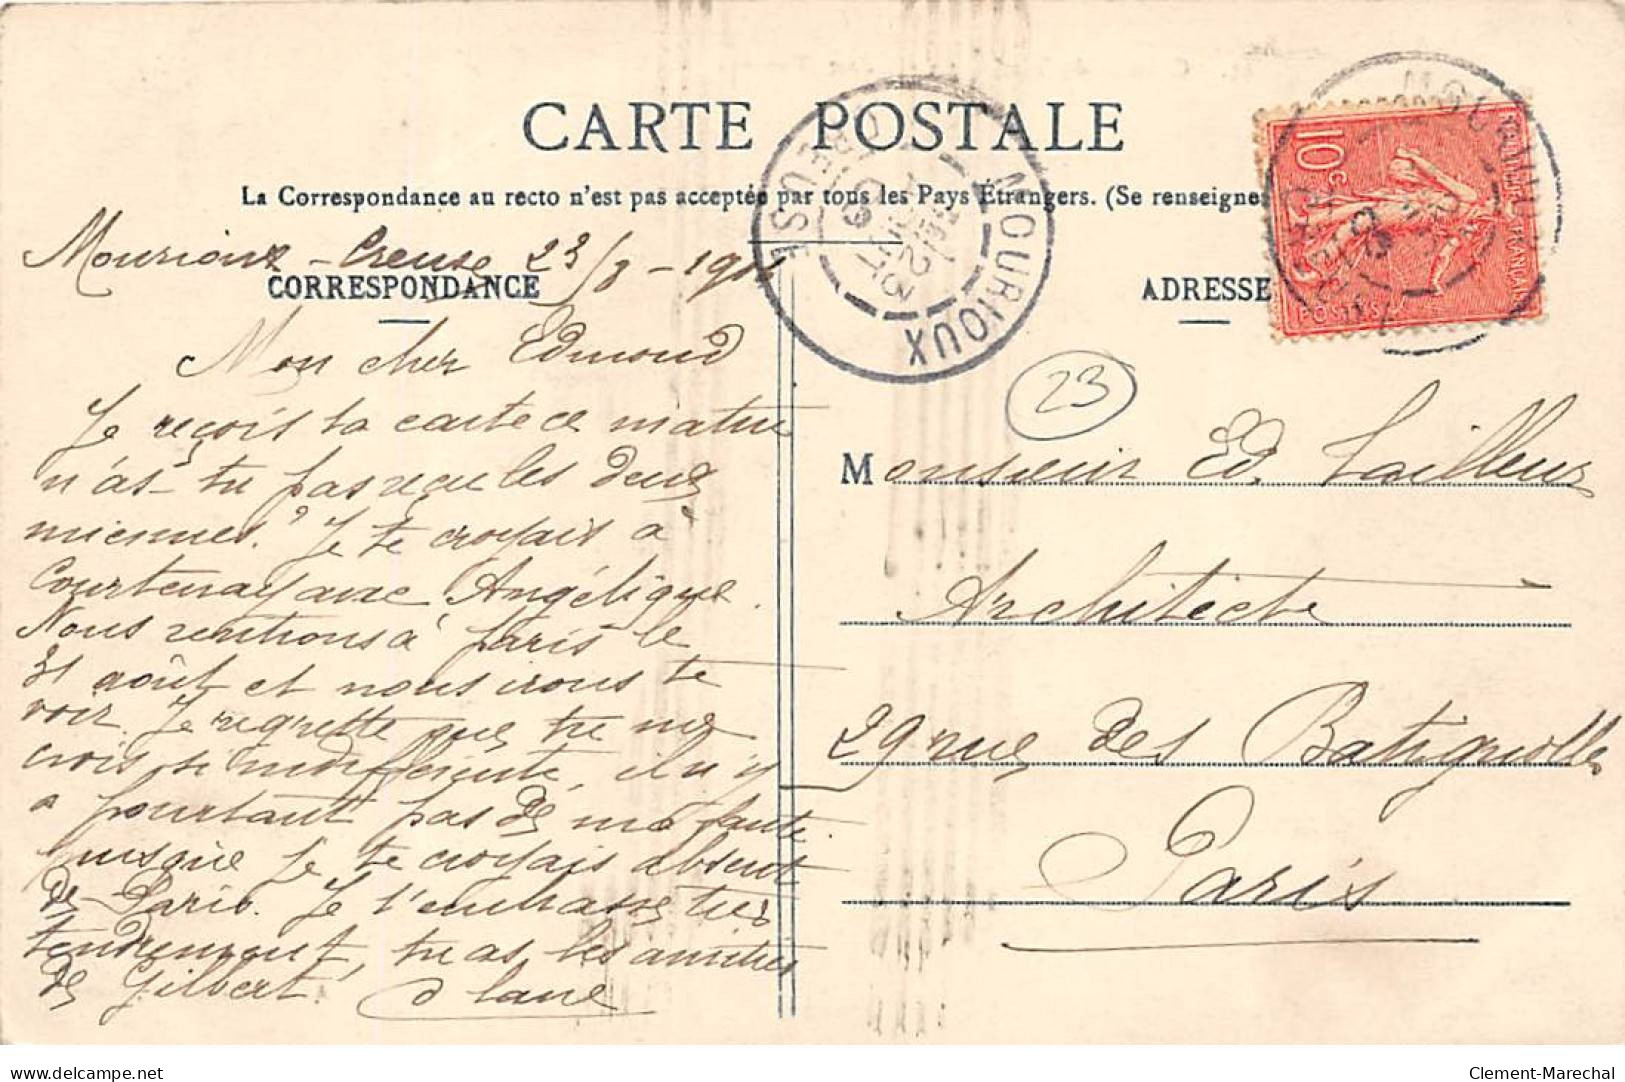 CARTE POSTALE
La Correspondance au recto n'est pas acceptée par tous les Pays Étrangers. (Se renseigne
Mourioux - Creuse 23/8 - 190
CORRESPONDANCE
ADRESSE
MOURIOUX
CREUSE
10c
POSTES
23
Mon cher Edmond
Je reçois ta carte ce matin
n'as-tu pas reçu les deux
miennes? Je te croyais à
Courtenay avec Angélique.
Nous rentrons à Paris le
31 août et nous irons te
voir. Je regrette que tu me
crois si indifférente, il n'y
a pourtant pas de ma faute
puisque je te croyais absent
de Paris. Je t'embrasse très
tendrement, tu as les amitiés
de Gilbert.
Monsieur Ed. Tailleur
Architecte
29 rue des Batignolles
Paris
delcampe.net
Clement-Marechal